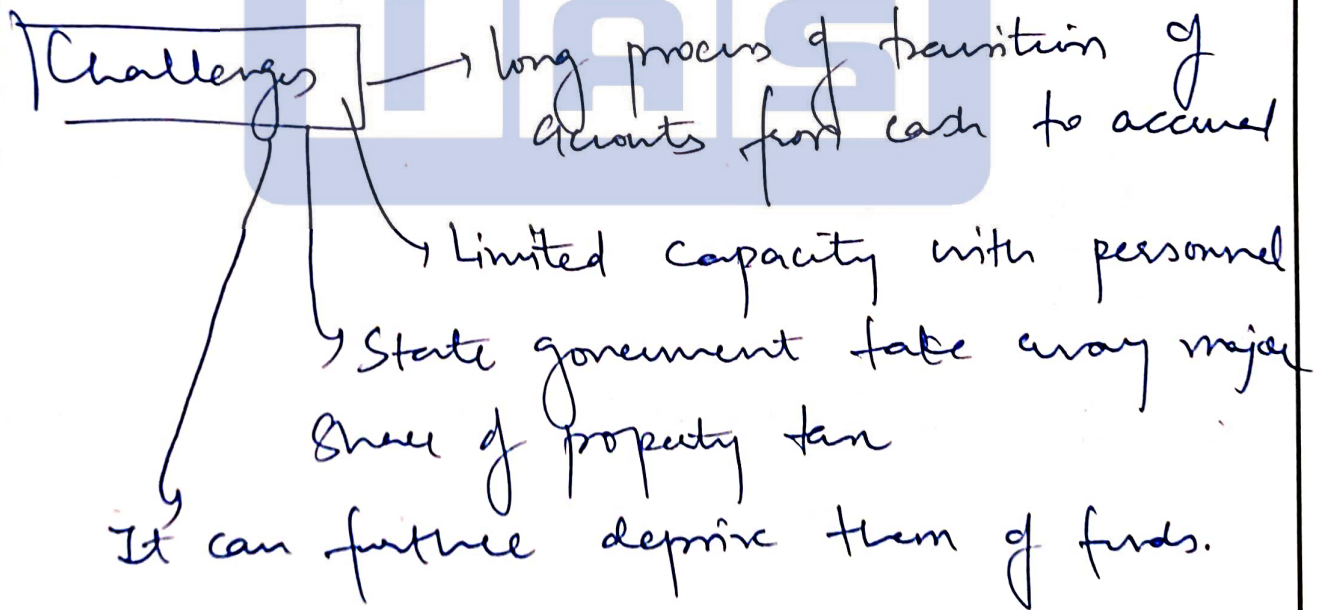 IAS
Challenges → long process of transition of
accounts from cash to accrual
→ Limited capacity with personnel
→ State government take away major
share of property tax
It can further deprive them of funds.